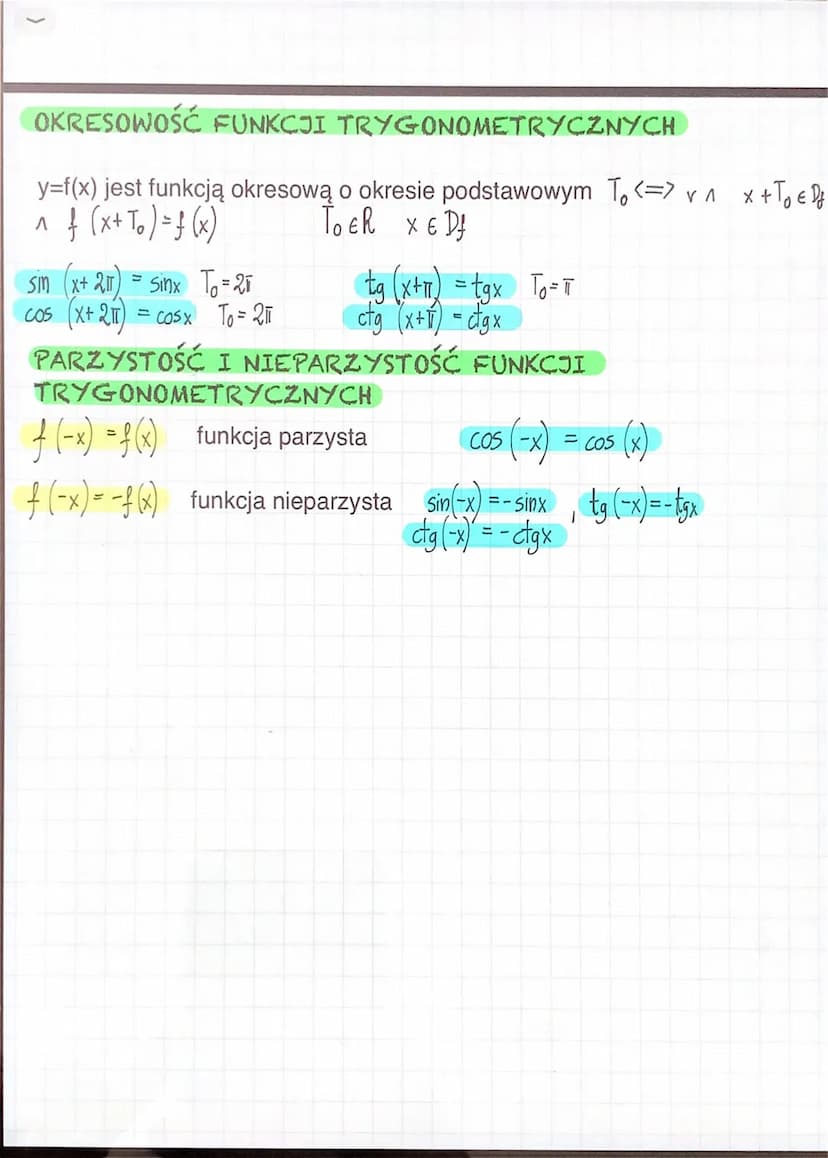 OKRESOWOŚĆ FUNKCJI TRYGONOMETRYCZNYCH
y=f(x) jest funkcją okresową o okresie podstawowym T₀ <=> ∨ ∧ x+T₀ ∈ Df
∧ f (x+T₀)=f(x) T₀∈R x ∈ Df
sin (x+2π) = sinx T₀=2π tg (x+π) = tgx T₀=π
cos (x+2π) = cosx T₀=2π ctg (x+π) = ctgx
PARZYSTOŚĆ I NIEPARZYSTOŚĆ FUNKCJI
TRYGONOMETRYCZNYCH
f(-x) = f(x) funkcja parzysta cos (-x) = cos (x)
f(-x)= -f(x) funkcja nieparzysta sin(-x) = -sinx , tg(-x)=-tgx
ctg(-x) = -ctgx